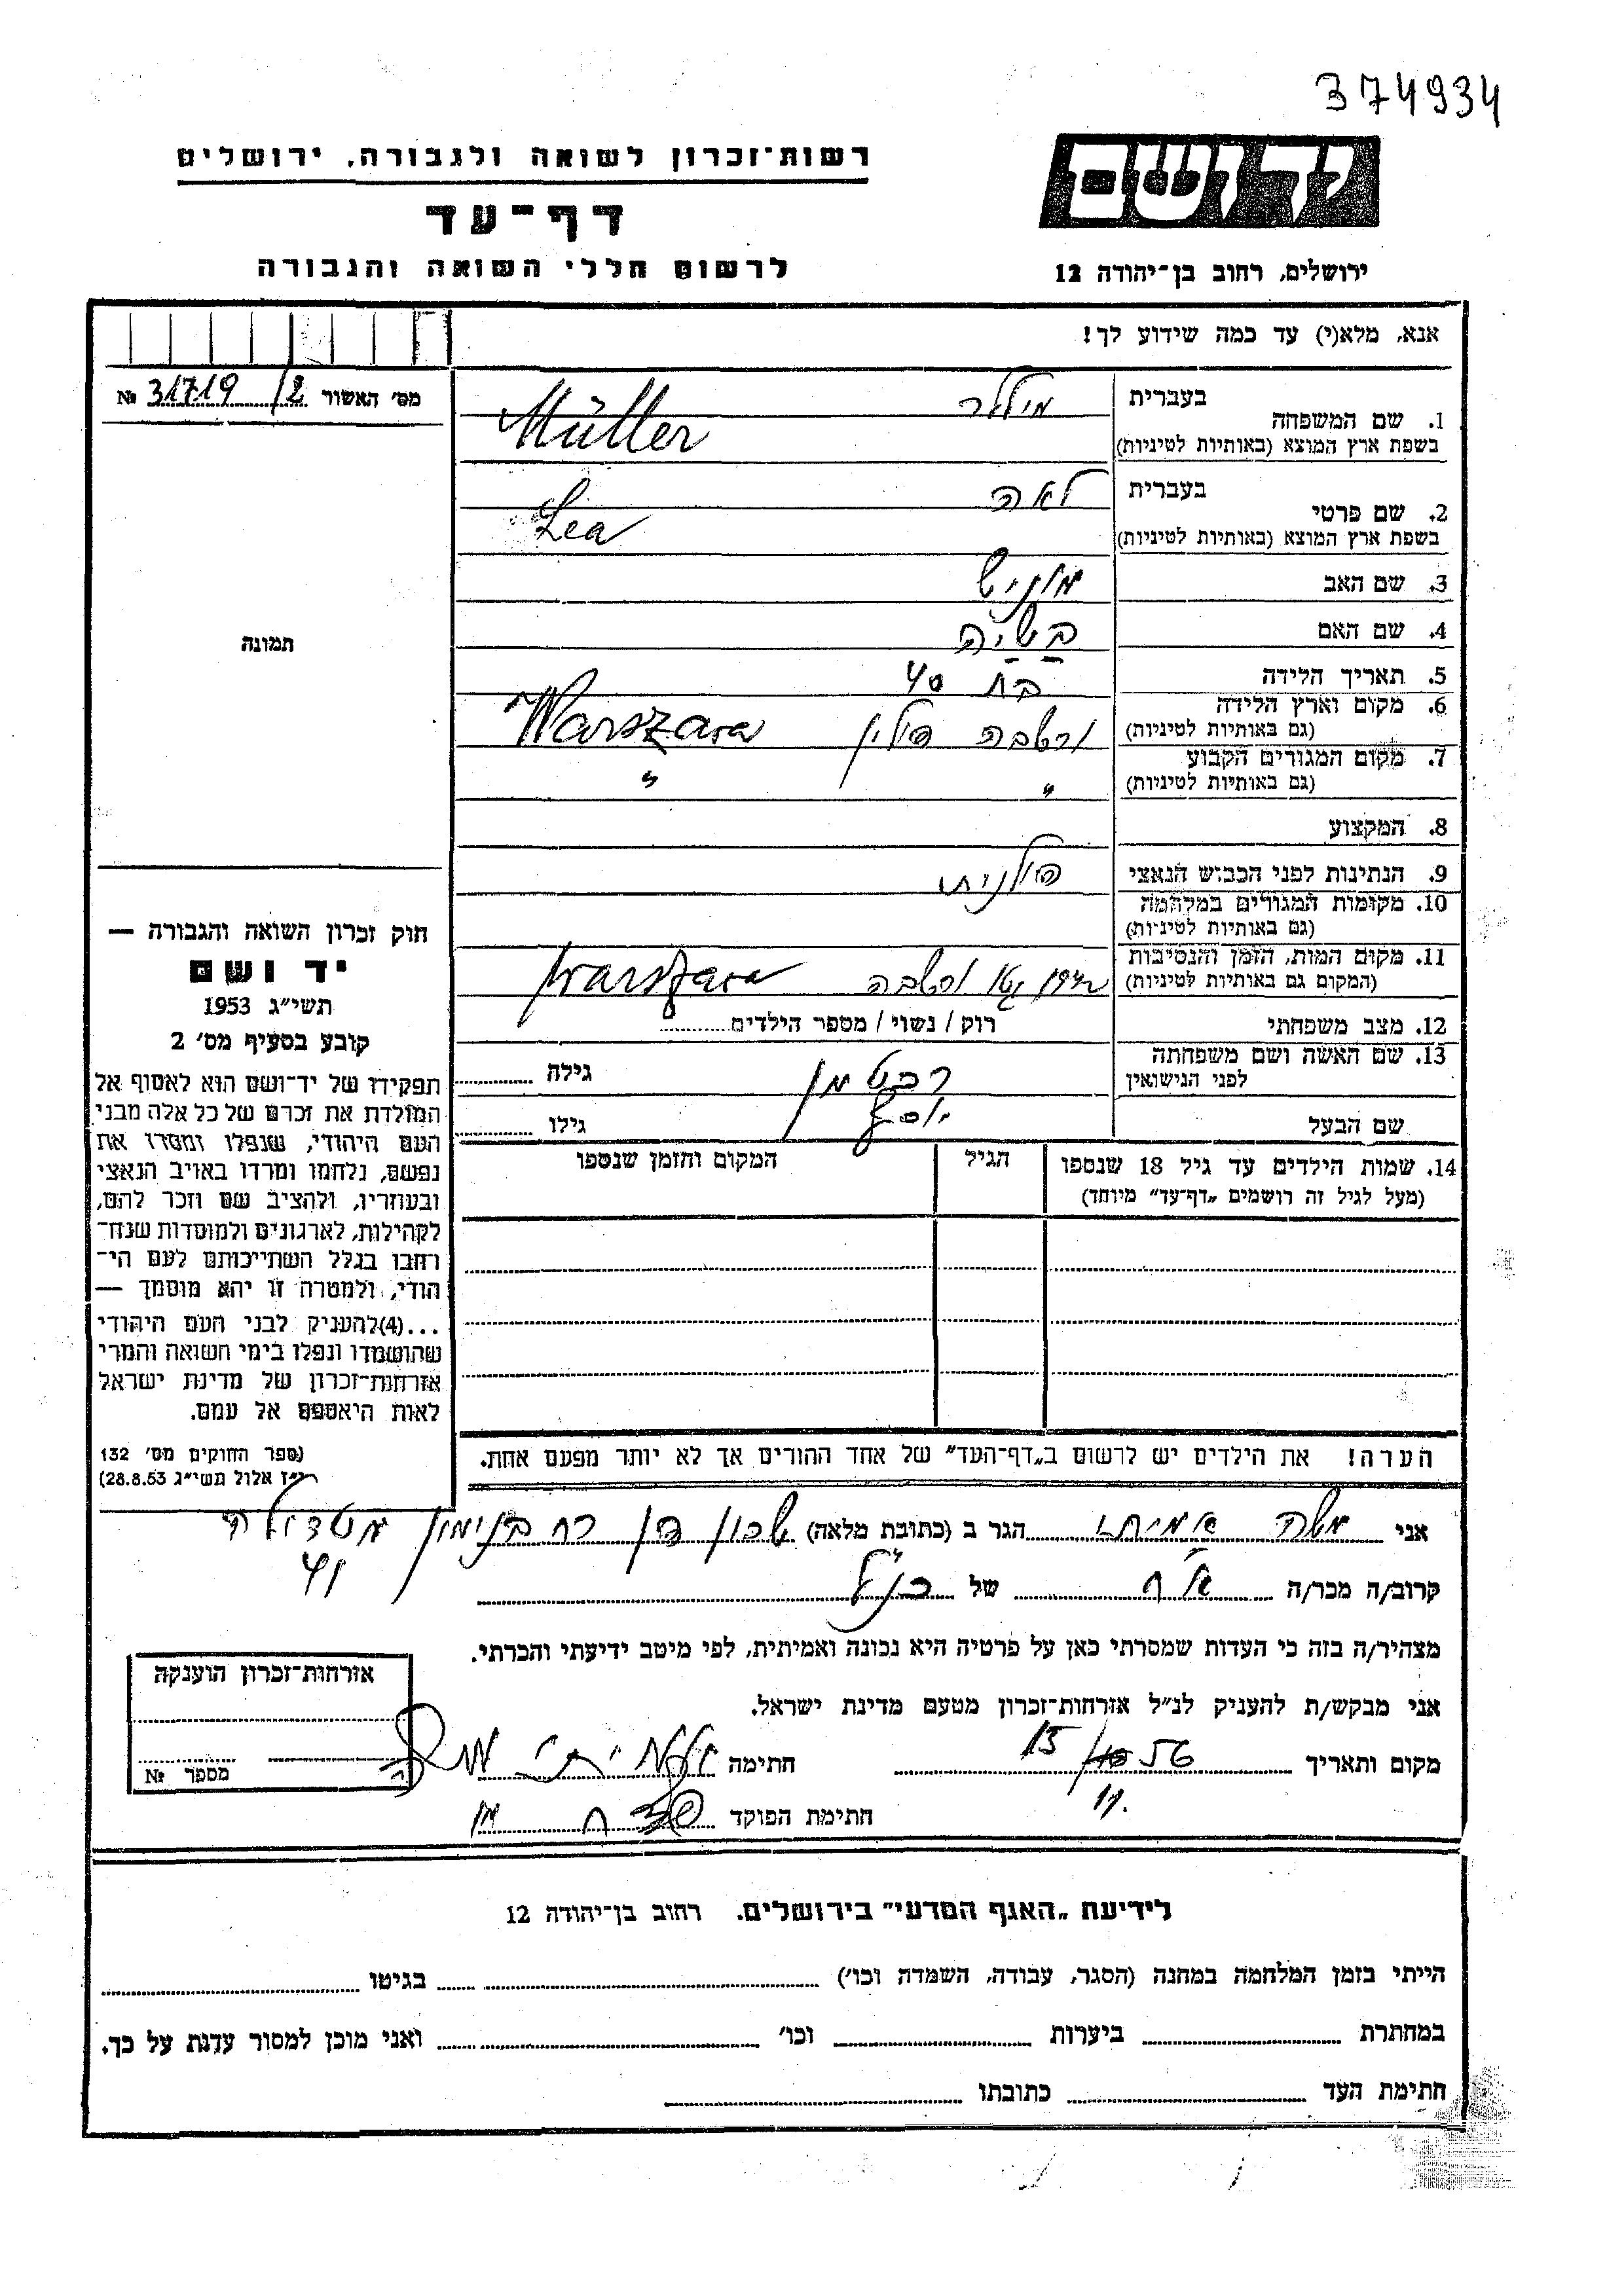 374934
יד ושם
רשות־זכרון לשואה ולגבורה, ירושלים
דף־עד
לרשום חללי השואה והגבורה
ירושלים, רחוב בן־יהודה 12
אנא, מלא(י) עד כמה שידוע לך!
מס׳ האשור 31719/2 №
תמונה
1. שם המשפחה
בעברית מילר
בשפת ארץ המוצא (באותיות לטיניות) Müller
2. שם פרטי
בעברית לאה
בשפת ארץ המוצא (באותיות לטיניות) Lea
3. שם האב מוניש
4. שם האם
5. תאריך הלידה בת 40
6. מקום וארץ הלידה
(גם באותיות לטיניות) ורשבה פולין Warszawa
7. מקום המגורים הקבוע
(גם באותיות לטיניות) " "
8. המקצוע
9. הנתינות לפני הכבוש הנאצי פולנית
10. מקומות המגורים במלחמה
(גם באותיות לטיניות)
11. מקום המות, הזמן והנסיבות
(המקום גם באותיות לטיניות) גטו ורשבה Warszawa
12. מצב משפחתי רוק / נשוי / מספר הילדים
13. שם האשה ושם משפחתה
לפני הנישואין גילה
שם הבעל יוסף גילו
14. שמות הילדים עד גיל 18 שנספו
(מעל לגיל זה רושמים „דף־עד״ מיוחד)
הגיל
המקום והזמן שנספו
חוק זכרון השואה והגבורה —
יד ושם
תשי״ג 1953
קובע בסעיף מס׳ 2
תפקידו של יד־ושם הוא לאסוף אל
המולדת את זכרם של כל אלה מבני
העם היהודי, שנפלו ומסרו את
נפשם, נלחמו ומרדו באויב הנאצי
ובעוזריו, ולהציב שם וזכר להם,
לקהילות, לארגונים ולמוסדות שנח־
רחבו בגלל השתייכותם לעם הי־
הודי, ולמטרה זו יהא מוסמך —
...(4)להעניק לבני העם היהודי
שהושמדו ונפלו בימי השואה והמרי
אזרחות־זכרון של מדינת ישראל
לאות היאספם אל עמם.
(ספר החוקים מס׳ 132
י״ז אלול תשי״ג 28.8.53)
הערה! את הילדים יש לרשום ב„דף־העד״ של אחד ההורים אך לא יותר מפעם אחת.
אני משה אמיתי הגר ב (כתובת מלאה) שכון דן רח בנימין מטדולה
41
קרוב/ה מכר/ה אח של הנ״ל
מצהיר/ה בזה כי העדות שמסרתי כאן על פרטיה היא נכונה ואמיתית, לפי מיטב ידיעתי והכרתי.
אני מבקש/ת להעניק לנ״ל אזרחות־זכרון מטעם מדינת ישראל.
מקום ותאריך 15/11 56 חתימה אמיתי משה
חתימת הפוקד
אזרחות־זכרון הוענקה
מספר №
לידיעת „האגף המדעי״ בירושלים, רחוב בן־יהודה 12
הייתי בזמן המלחמה במחנה (הסגר, עבודה, השמדה וכו׳) בגיטו
במחתרת ביערות וכו׳ ואני מוכן למסור עדות על כך.
חתימת העד כתובתו